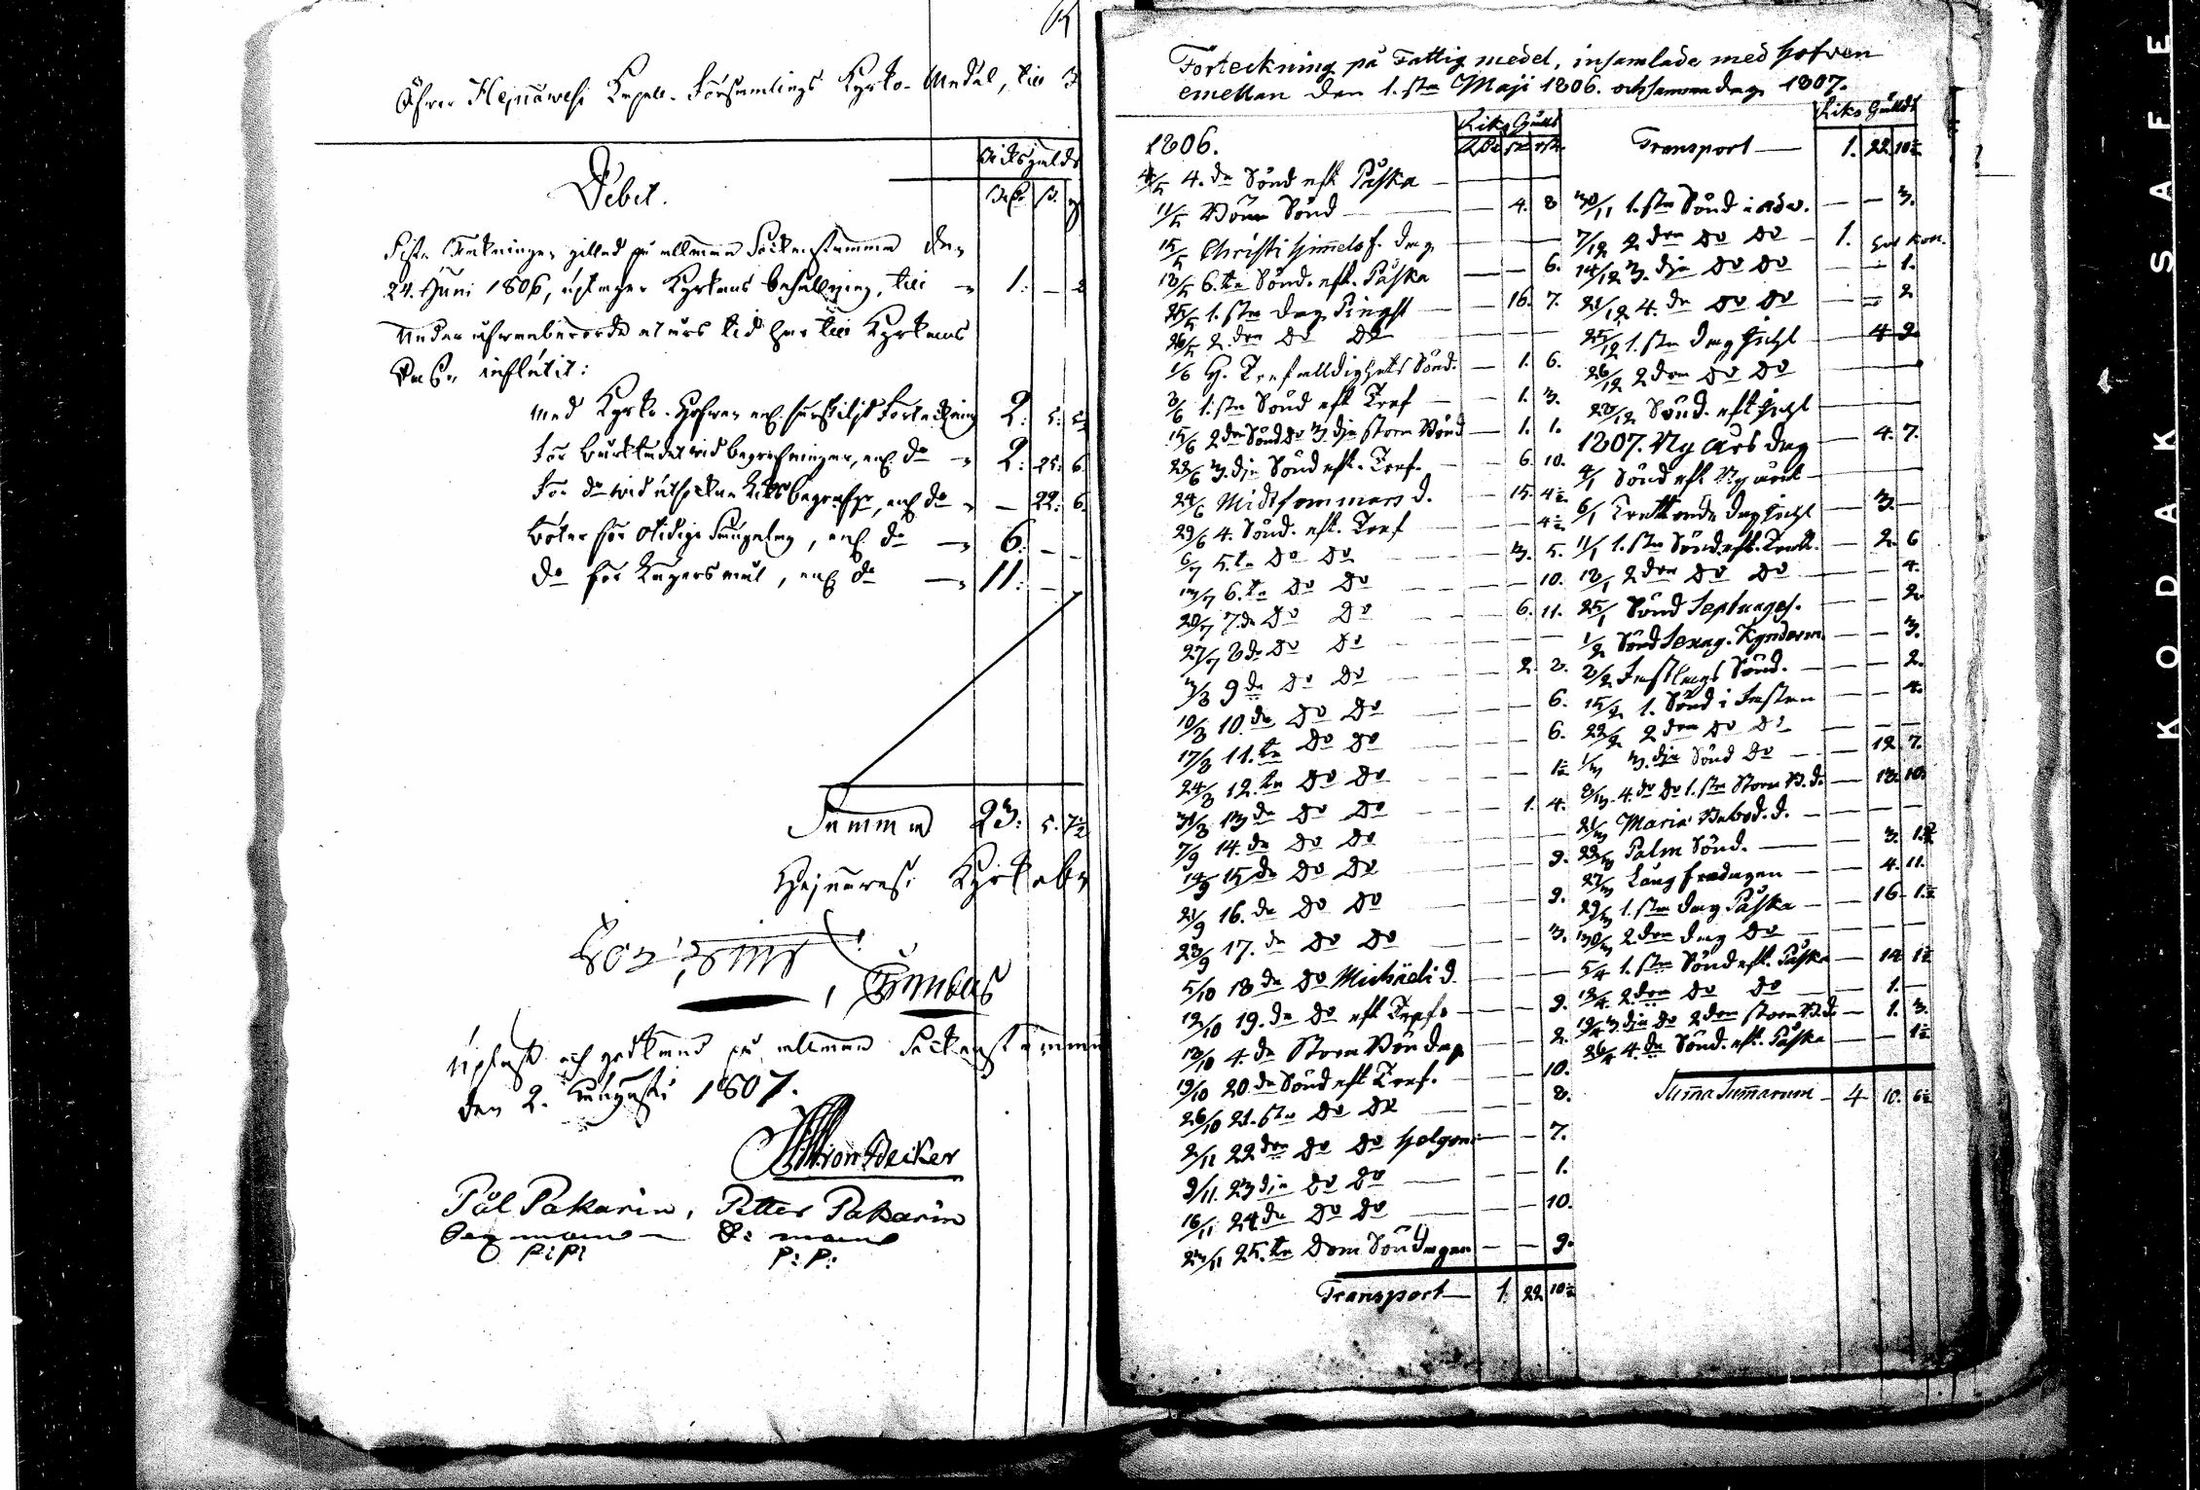 Öfver Hejnäwesi Capell-Församlings Kyrko-Medel, till
Riksgälds
Debet.
Rdr s. r
Sista Räkningen gillad på allmänna Sockenstämman den
24. Juni 1806, uptager Kyrkans behållning, till 1. —
Under ofvanberörde et års tid har till Kyrkans
Cassa influtit:
med Kyrko-Hofven enl. särskild Förteckning 2. 5.
för bårklädet vid begrafningar, enl. do 2. 25. 6.
för do vid begrafn., enl. do — 22. 6.
böter för otidigt Sängelag, enl. do 6. — —
do för Lägersmål, enl. do 11. —
Summa 23. 5. 7½
Hejnävesi Kyrkoby
Upläst och godkänd på allmän Sockenstämma
den 2. Augusti 1807.
Aron Becker
Pål Pakarin, Petter Pakarin
Sexman 6: man
P: P: P: P:
Förteckning på Fattig medel, insamlade med Hofven
emellan den 1.sta Maji 1806. och samma dag 1807.
Riks Gälds
1806. Rdr sk. rst.
4/5 4.de Sönd. eft. Påska —
11/5 Böne Sönd — — 4. 8
15/5 Christi Himmelsf. dag
18/5 6.te Sönd. eft. Påska — — 6.
25/5 1.sta dag Pingst — 16. 7.
26/5 2.dra do do — — —
1/6 H. Trefalldighets Sönd. — 1. 6.
8/6 1.sta Sönd eft Tref — — 1. 3.
15/6 2dra Sönd do 3.dje stora Bönd — 1. 1.
22/6 3.dje Sönd eft. Tref. — — 6. 10.
24/6 Midsommars d. — 15. 4½
29/6 4. Sönd. eft. Tref — — 4½
6/7 5.te do do — — 3. 5.
13/7 6.te do do — — 10.
20/7 7.de do do — — 6. 11.
27/7 8de do do — — —
3/8 9de do do — — 2. 8.
10/8 10.de do do — — 6.
17/8 11.te do do — — 6.
24/8 12.te do do — — 1½
31/8 13de do do — — 1. 4.
7/9 14.de do do — — —
14/9 15de do do — — 9.
21/9 16.de do do — — 9.
28/9 17.de do do — — 3.
5/10 18de do Michaeli d. — — —
12/10 19.de do eft Tref. — — 9.
12/10 4.de Stora Böndag — — 2.
19/10 20.de Sönd eft Tref. — — 10.
26/10 21.sta do do — — 8.
2/11 22dra do do Helgon — — 7.
9/11. 23dje do do — — 1.
16/11 24de do do — — 10.
23/11 25.te Dom Söndagen — — 9.
Transport — 1. 22 10½
Riks Gälds
Transport — 1. 22 10½
30/11 1.sta Sönd i adv. — — 3.
7/12 2dra do do — 1.
14/12 3.dje do do — — 1.
21/12 4.de do do — — 2
25/12 1.sta dag Juhl — 4 9.
26/12 2dra do do —
28/12 Sönd. eft Juhl —
1807. Ny Års dag — 4. 7.
4/1 Sönd eft Nyåret —
6/1 Trettonde dag Juhl — 3. —
11/1 1.sta Sönd. eft. Trett. — 2. 6
18/1 2dra do do — — 4.
25/1 Sönd Septuages. — — 2.
1/2 Sönd Sexag. Kyndersm. — — 3.
8/2 Fastlags Sönd. — — 2.
15/2 1. Sönd i Fasten — — 4.
22/2 2dra do do — — —
1/3 3.dje Sönd do — — 12. 7.
8/3. 4.de do 1.sta Stora B.d. — 13. 10.
21/3 Mariæ Bebod. d. — — —
22/3 Palm Sönd. — — 3. 1½
27/3 Långfredagen — — 4. 11.
29/3 1.sta dag Påska — — 16. 1½
30/3 2.dra dag do — — —
5/4 1.sta Sönd eft. Påska — 12 1½
12/4. 2.dra do do — 1. —
19/4 3.dje do 2dra stora B.d. — 1. 3.
26/4 4.de Sönd. eft. Påska — — 1½
Suma Sumarum — 4 10. 6½
KODAK SAFE